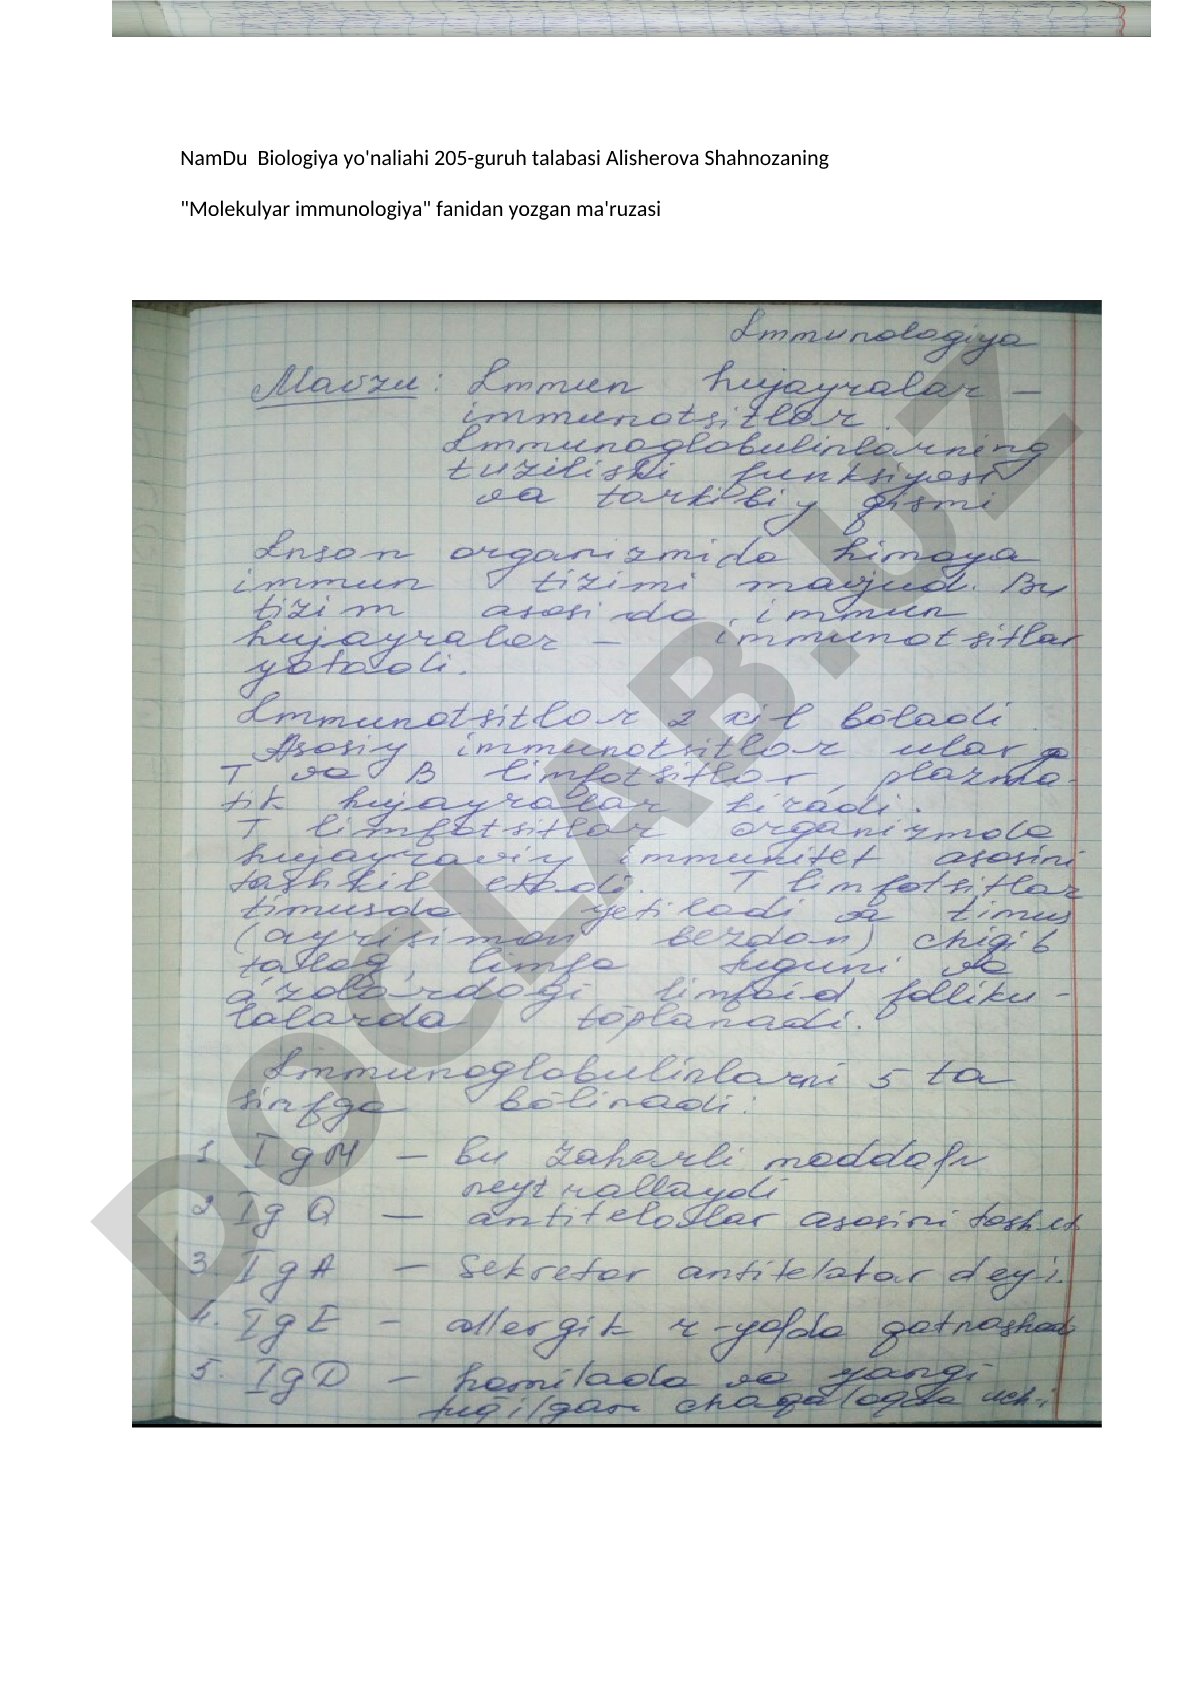 NamDu Biologiya yo'naliahi 205-guruh talabasi Alisherova Shahnozaning
"Molekulyar immunologiya" fanidan yozgan ma'ruzasi
Immunologiya
Mavzu: Immun hujayralar –
immunotsitlar.
Immunoglobulinlarning
tuzilishi funksiyasi
va tarkibiy qismi
Inson organizmida himoya
immun tizimi mavjud. Bu
tizim asosida immun
hujayralar – immunotsitlar
yotadi.
Immunotsitlar 2 xil bōladi
Asosiy immunotsitlar ularga
T va B limfotsitlar, plazma-
tik hujayralar kiradi.
T limfotsitlar organizmda
hujayraviy immunitet asosini
tashkil etadi. T limfotsitlar
timusda yetiladi va timus
(ayrisimon bezdan) chiqib
taloq, limfa tuguni va
a'zolardagi limfoid folliku-
lalarda tōplanadi.
Immunoglobulinlarni 5 ta
sinfga bōlinadi:
1. IgM – bu zaharli moddafi
neytrallaydi
2. IgQ – antitelolar asosini tashet
3. IgA – Sekretor antitelolar deyi.
4. IgE – allergik r-yafda qatnashadi
5. IgD – homilada va yangi
tuģilgan chaqaloqda uchi
DOCLAB.UZ